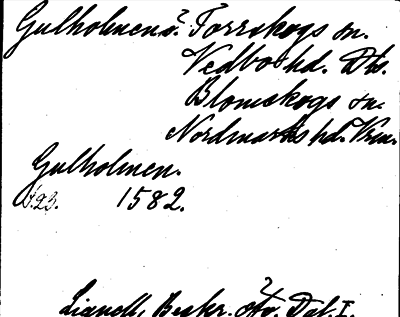 Gulholmens? Torrskogs sn.
Vedbo hd. Dls.
Blomskogs sn.
Nordmarks hd. Vrm.
Gulholmen.
s. 23. 1582.
Lignell, Beskr. öfv. Dal. I.